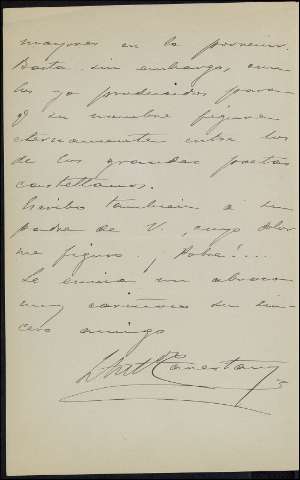 mayores en lo porvenir.
Basta sin embargo, con
los ya producidos para
q̃ su nombre figure
eternamente entre los
de los grandes poetas
castellanos.
Escribo también á su
padre de V., cuyo dolor
me figuro. ¡Pobre!...
Le envia un abrazo
muy cariñoso su sin-
cero amigo